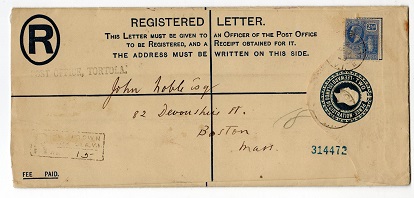 REGISTERED LETTER.
THIS LETTER MUST BE GIVEN TO AN OFFICER OF THE POST OFFICE
TO BE REGISTERED, AND A RECEIPT OBTAINED FOR IT.
THE ADDRESS MUST BE WRITTEN ON THIS SIDE.
R
POST OFFICE, TORTOLA
John Noble Esq
82 Devonshire St.
Boston
Mass.
314472
FEE PAID.